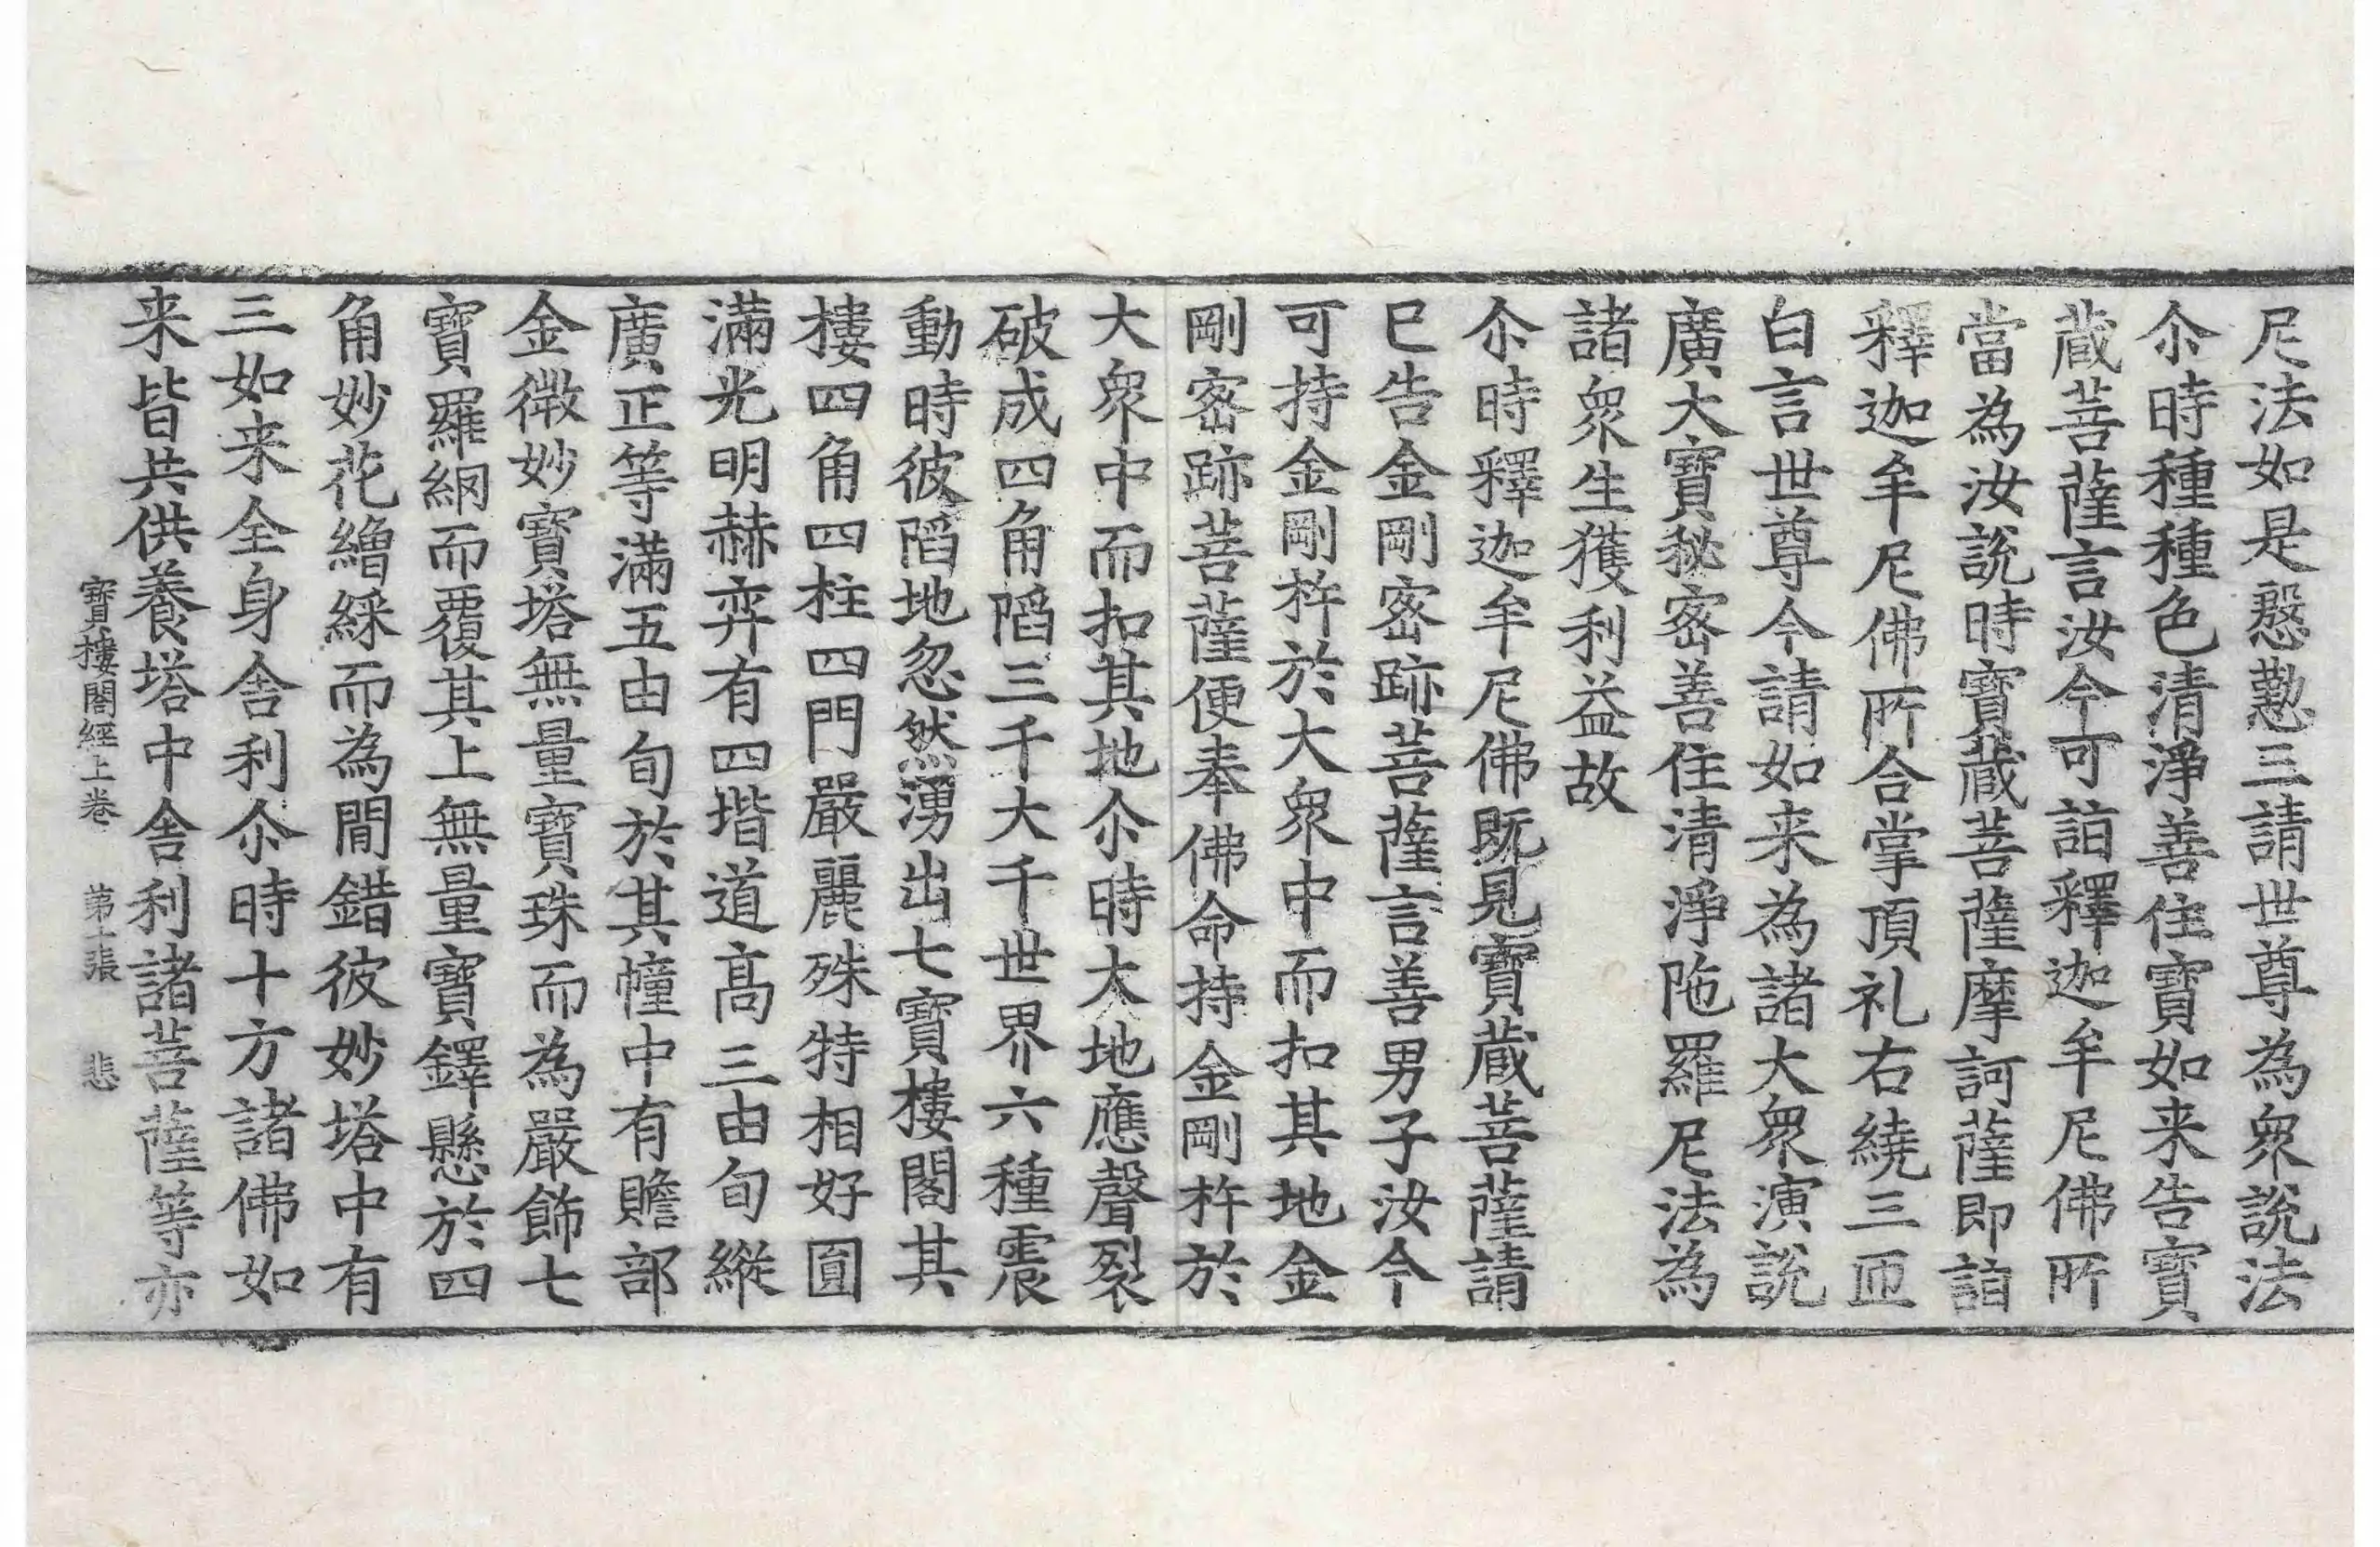 尼法如是慇懃三請世尊為衆說法
尒時種種色清淨善住寶如来告寶
蔵菩薩言汝今可詣釋迦牟尼佛所
當為汝說時寶蔵菩薩摩訶薩即詣
釋迦牟尼佛所合掌頂礼右繞三匝
白言世尊今請如来為諸大衆演說
廣大寶秘密善住清淨陁羅尼法為
諸衆生獲利益故
尒時釋迦牟尼佛既見寶蔵菩薩請
已告金剛密跡菩薩言善男子汝今
可持金剛杵於大衆中而扣其地金
剛密跡菩薩便奉佛命持金剛杵於
大衆中而扣其地尒時大地應聲裂
破成四角䧟三千大千世界六種震
動時彼䧟地忽然湧出七寶樓閣其
樓四角四柱四門嚴麗殊特相好圓
滿光明赫弈有四堦道髙三由旬縱
廣正等滿五由旬於其幢中有贍部
金微妙寶塔無量寶珠而為嚴飾七
寶羅網而覆其上無量寶鐸懸於四
角妙花繒綵而為間錯彼妙塔中有
三如来全身舎利尒時十方諸佛如
来皆共供養塔中舎利諸菩薩等亦
寶樓閣經上卷 第十張 悲